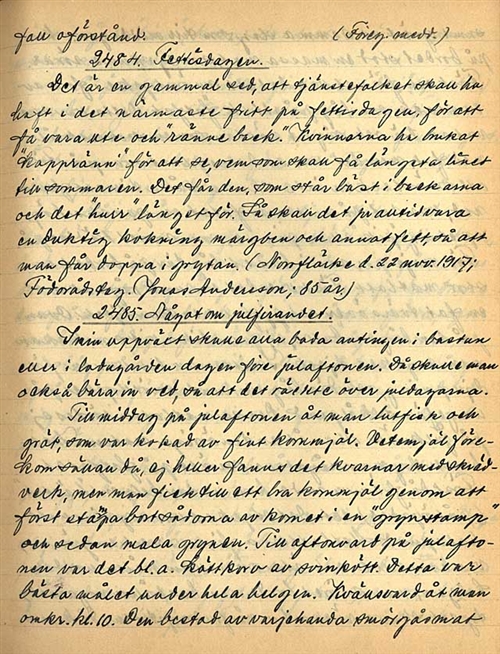 fall oförstånd. (Föreg. medd.)
2484. Fettisdagen.
Det är en gammal sed, att tjänstefolket skall ha
haft i det närmaste fritt på fettisdagen, för att
få vara ute och "ränne back." Kvinnorna ha brukat
"kappränni" för att se, vem som skall få längsta linet
till sommaren. Det får den, som står bäst i backarna
och det "hurr" länget för. Så skall det ju altid vara
en duktig kokning märgben och annat fett, så att
man får doppa i grytan. (Norrfläcke d. 22 nov. 1917;
Födorådstag. Jonas Andersson; 85 år)
2485. Något om julfirandet.
I min uppväxt skulle alla bada antingen i bastun
eller i ladugården dagen före julaftonen. Då skulle man
också bära in ved, så att det räckte över juldagarna.
Till middag på julaftonen åt man lutfisk och
gröt, som var kokad av fint kornmjöl. Vetemjöl före-
kom sällan då, ej heller fanns det kvarnar med skräd-
verk, men man fick till ett bra kornmjöl genom att
först stampa bort sådorna av kornet i en "grynstamp"
och sedan mala grynen. Till aftonvard på julafto-
nen var det bl.a. köttkorv av svinkött. Detta var
bästa målet under hela helgen. Kvällsvard åt man
omkr. kl. 10. Den bestod av varjehanda smörgåsmat